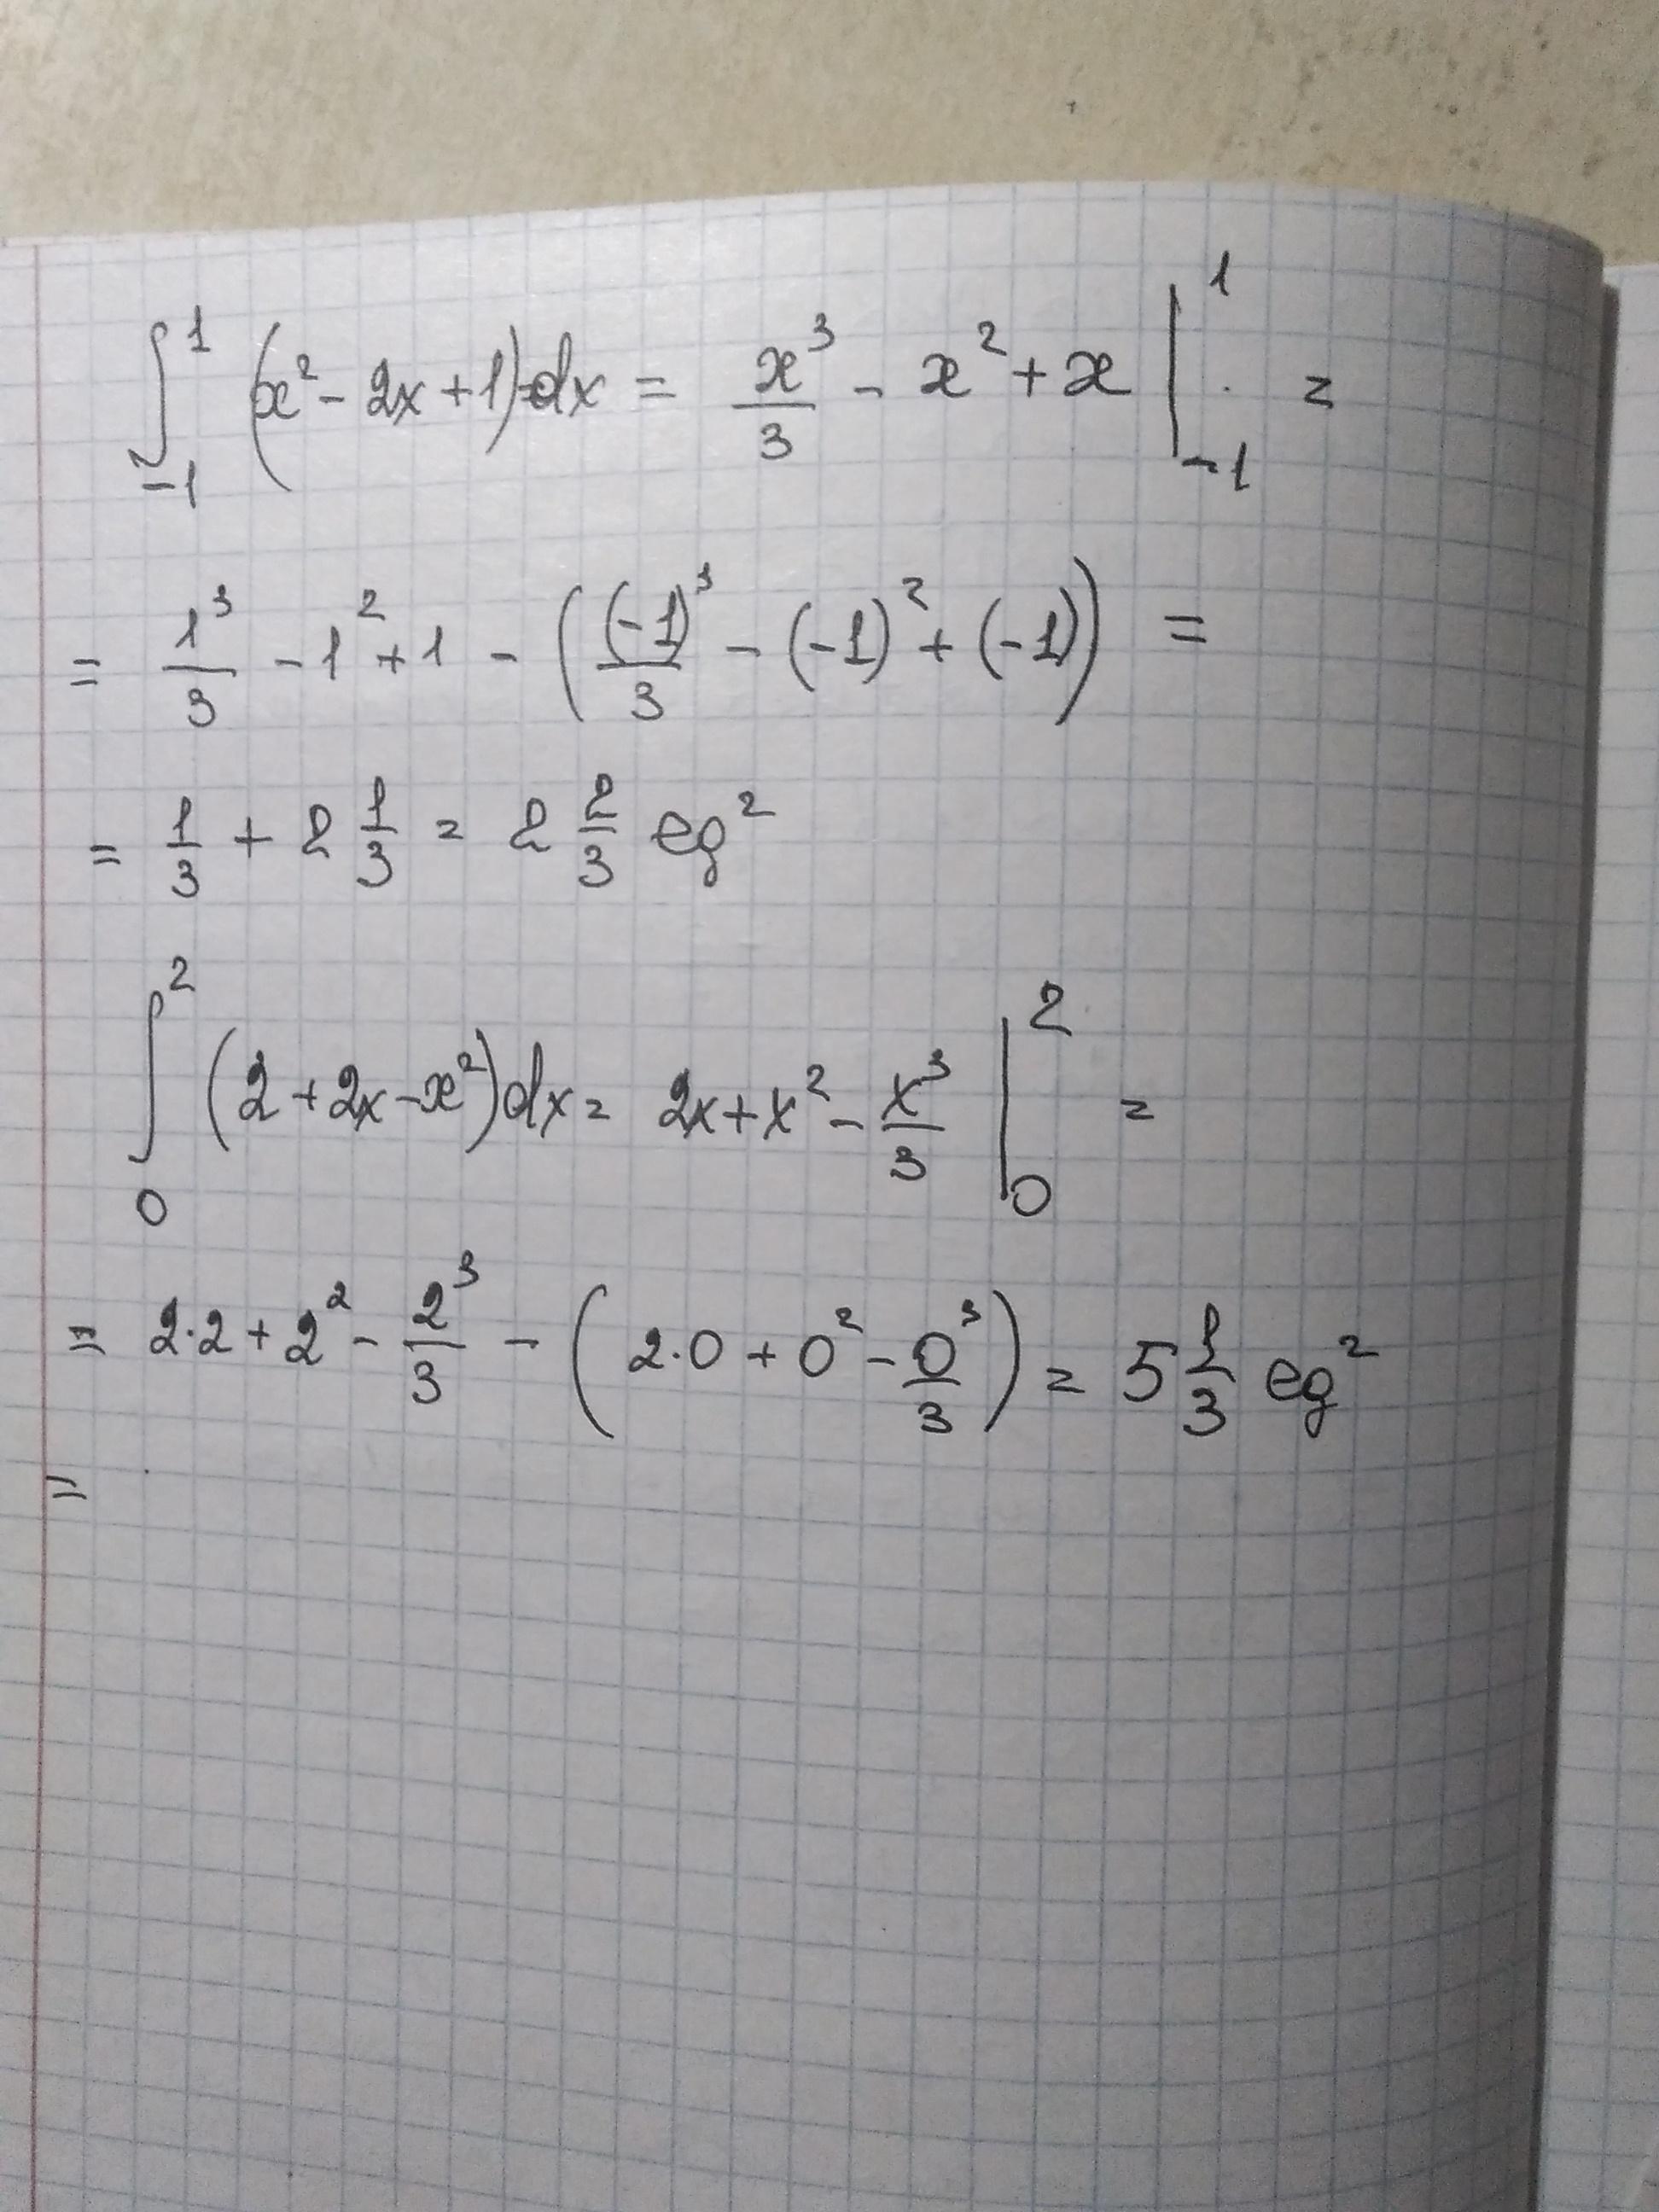 ∫₋₁¹ (x² - 2x + 1) dx = x³/3 - x² + x |₋₁¹ =
= 1³/3 - 1² + 1 - ((-1)³/3 - (-1)² + (-1)) =
= 1/3 + 2 1/3 = 2 2/3 eg²
∫₀² (2 + 2x - x²) dx = 2x + x² - x³/3 |₀² =
= 2·2 + 2² - 2³/3 - (2·0 + 0² - 0³/3) = 5 1/3 eg²
=